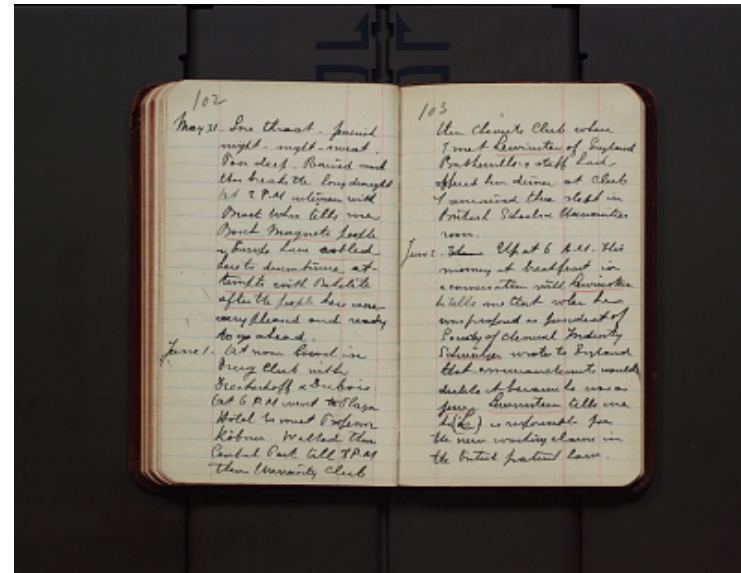 102
May 31. Sore throat - feverish
night - night-sweat.
Poor sleep. Rained much
this breaks the long drought
At 2 P.M interview with
Brock who tells me
Bosch Magneto people
in Europe have cabled
here to discontinue at-
tempts with Bakelite
after the people here were
very pleased and ready
to go ahead.
June 1. At noon lunch in
Drug Club with
& Dubois
At 6 P.M went to Plaza
Hotel to meet Professor
Köbner. Walked thru
Central Park till 7 P.M
then University Club
103
then Chemists Club where
I met Lewinstein of England
Baskerville & staff had
offered him dinner at Club
I answered the in
British Schools & Universities
room.
June 2. Up at 6 A.M. This
morning at breakfast in
conversation with Lewinstein
he tells me that when he
was proposed as president of
Society of Chemical Industry
wrote to England
that announcement would
it because he was a
jew. Lewinstein tells me
he (L) is responsible for
the new working clause in
the british patent law.